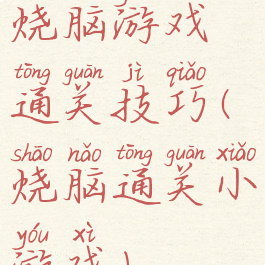 烧脑游戏
tōng guān jì qiǎo
通关技巧(
shāo nǎo tōng guān xiǎo
烧脑通关小
yóu xì
游戏)